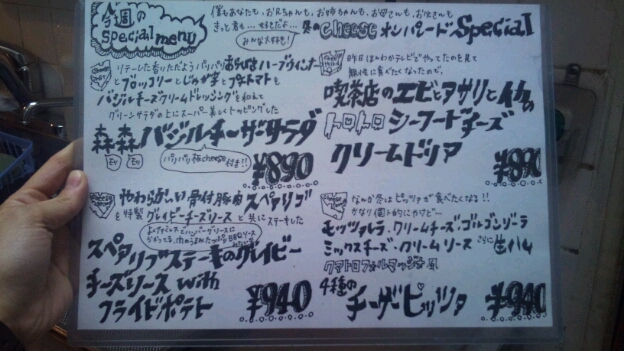 今週の
special menu
僕もあなたも、お兄ちゃんも、お姉ちゃんも、お母さんも、お父さんも
きっと君も… 好きだよ…
みんな大好き!
冬のcheeseオンパレードSpecial
ソテーした香りただようパリパリあらびきハーブウィンナー
とブロッコリーとじゃが芋とプチトマトも
バジルチーズクリームドレッシングを和えて
グリーンサラダの上にスーパー楽しくトッピングした
森森バジルチーザーサラダ
パリパリ極cheese付き!!
¥890
昨日ほわかテレビでやってたのを見て
無性に食べたくなったので、
喫茶店のエビとアサリとイカの
トロトロシーフードチーズ
クリームドリア
¥890
やわらか〜い骨付豚肉スペアリブ
を特製グレイビーチーズソースと共にステーキした
スペアリブステーキのグレイビー
チーズソース with
フライドポテト
¥940
なんか冬はピッツァが食べたくなる!!
かなり個人的にやけど…
モッツァレラ・クリームチーズ・ゴルゴンゾーラ
ミックスチーズ・クリームソース さらに生ハム
クアトロフォルマッジ風
4種の
チーザーピッツァ
¥940